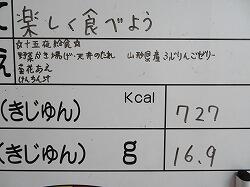 楽しく食べよう
え
☆十五夜給食☆
野菜かき揚げ・天丼のたれ 山形県産ぶどうりんごゼリー
菊花あえ
けんちん汁
Kcal
(きじゅん) 727
(きじゅん) g 16.9